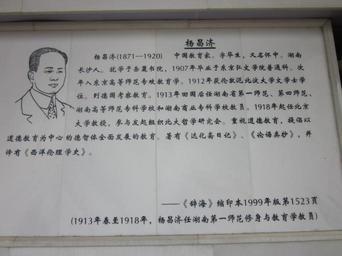 杨昌济
杨昌济(1871—1920) 中国教育家。字华生，又名怀中。湖南
长沙人。就学于岳麓书院，1907年毕业于东京弘文学院普通科。次
年入东京高等师范专攻教育学。1912年获伦敦阿伯淀大学文学士学
位。到德国考察教育。1913年回国后任湖南省第一师范、第四师范、
湖南高等师范专科学校和湖南商业专科学校教员。1918年起任北京
大学教授，参与发起组织北大哲学研究会。重视道德教育，提倡以
道德教育为中心的德智体全面发展的教育。著有《达化斋日记》、《论语类抄》，并
译有《西洋伦理学史》。
——《辞海》缩印本1999年版第1523页
(1913年春至1918年，杨昌济任湖南第一师范修身与教育学教员)